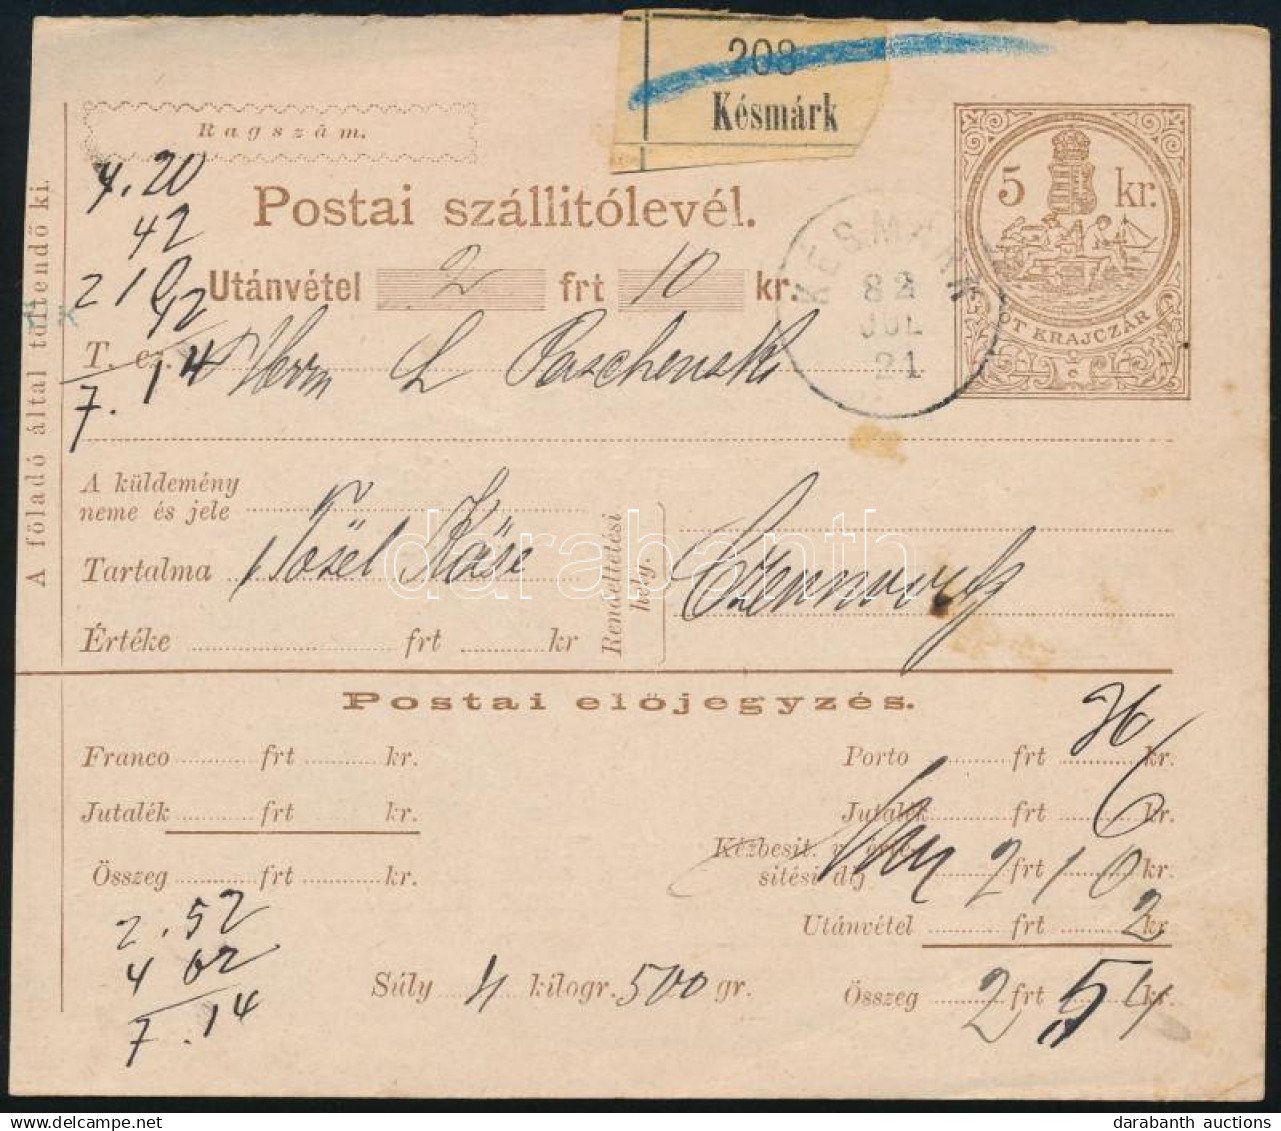 208
Késmárk
Ragszám.
5 kr.
ÖT KRAJCZÁR
A föladó által töltendő ki.
4.20
42
Postai szállitólevél.
KÉSMÁRK
82
JUL
21
210
Utánvétel 2 frt 10 kr.
42
T. cz. Herrn L Paschenski
7.14
A küldemény
neme és jele
Tartalma 1 Käse
Értéke frt kr
Rendeltetési
hely.
darabanth
Postai előjegyzés.
Franco frt kr.
Jutalék frt kr.
Összeg frt kr.
Porto frt 26 kr.
Jutalék frt 6 kr.
Kézbesit. v. érte-
sitési dij 2 frt 10 kr.
Utánvétel frt 2 kr
Összeg 2 frt 54 kr.
2.52
4 62
7.14
Súly 4 kilogr. 500 gr.
darabanth auctions